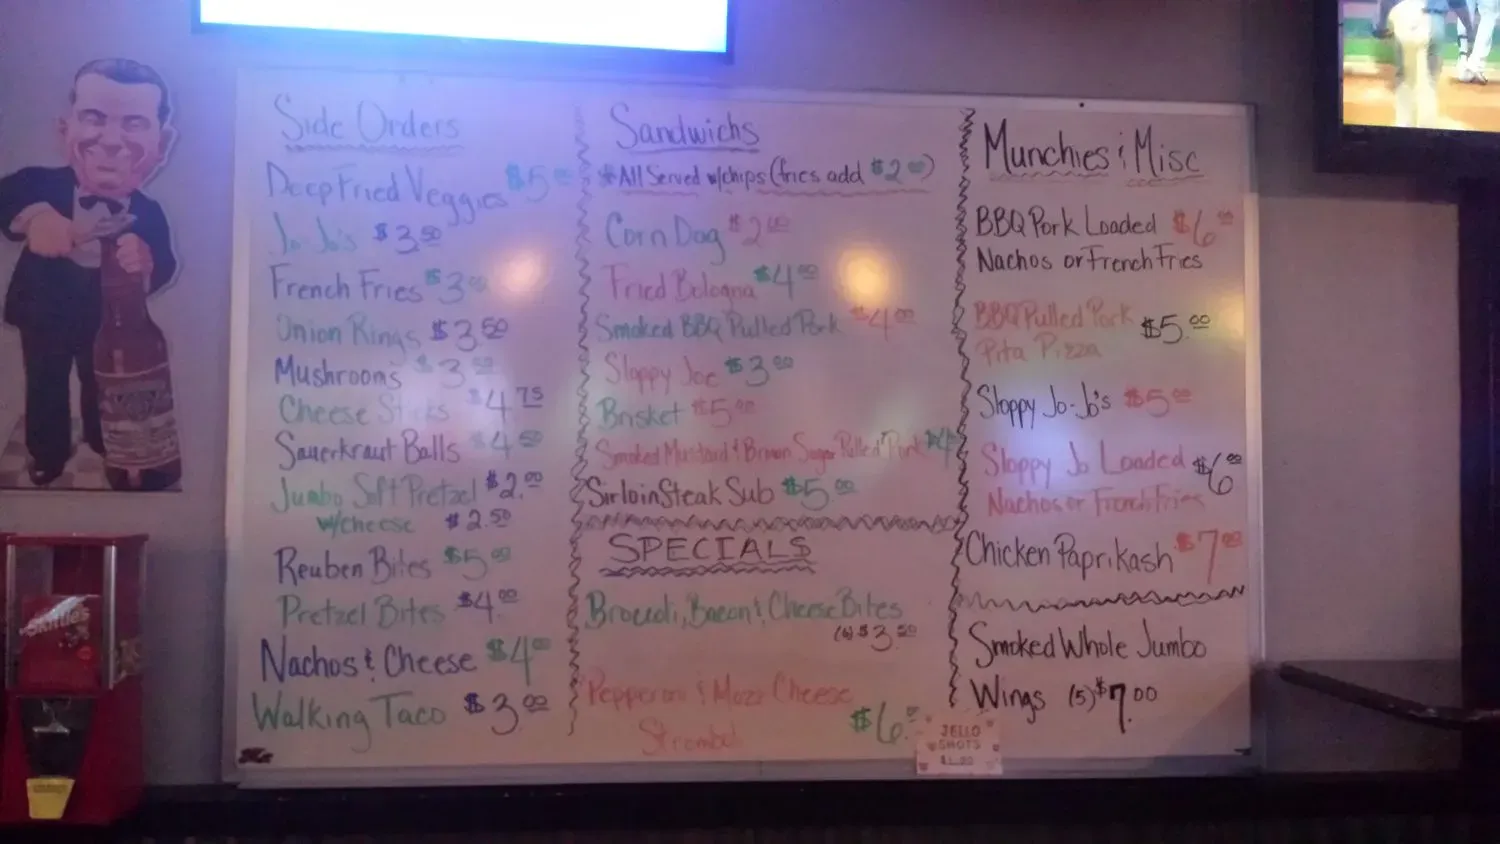 Side Orders
Deep Fried Veggies $5.00
Jo-Jo's $3.50
French Fries $3.00
Onion Rings $3.50
Mushrooms $3.50
Cheese Sticks $4.75
Sauerkraut Balls $4.50
Jumbo Soft Pretzel $2.00
w/cheese $2.50
Reuben Bites $5.00
Pretzel Bites $4.00
Nachos & Cheese $4.00
Walking Taco $3.00
Sandwichs
*All Served w/chips (fries add $2.00)
Corn Dog $2.00
Fried Bologna $4.00
Smoked BBQ Pulled Pork $4.00
Sloppy Joe $3.00
Brisket $5.00
Smoked Mustard & Brown Sugar Pulled Pork $4
Sirloin Steak Sub $5.00
SPECIALS
Broccoli, Bacon & Cheese Bites
(6) $3.50
Pepperoni & Mozz Cheese
$6.00
Stromboli
Munchies & Misc
BBQ Pork Loaded $6.00
Nachos or French Fries
BBQ Pulled Pork $5.00
Pita Pizza
Sloppy Jo-Jo's $5.00
Sloppy Jo Loaded $6.00
Nachos or French Fries
Chicken Paprikash $7.00
Smoked Whole Jumbo
Wings (5) $7.00
JELLO
SHOTS
$1.00
Skittles